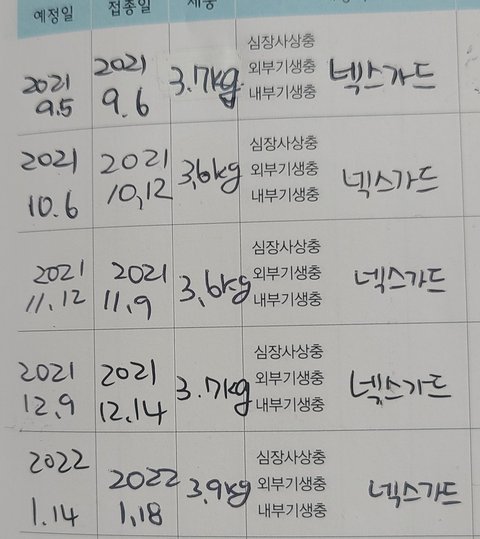 예정일 접종일 체중
2021 9.5 2021 9.6 3.7kg 심장사상충 외부기생충 내부기생충 넥스가드
2021 10.6 2021 10,12 3,6kg 심장사상충 외부기생충 내부기생충 넥스가드
2021 11.12 2021 11.9 3,6kg 심장사상충 외부기생충 내부기생충 넥스가드
2021 12.9 2021 12.14 3.7kg 심장사상충 외부기생충 내부기생충 넥스가드
2022 1.14 2022 1,18 3,9kg 심장사상충 외부기생충 내부기생충 넥스가드